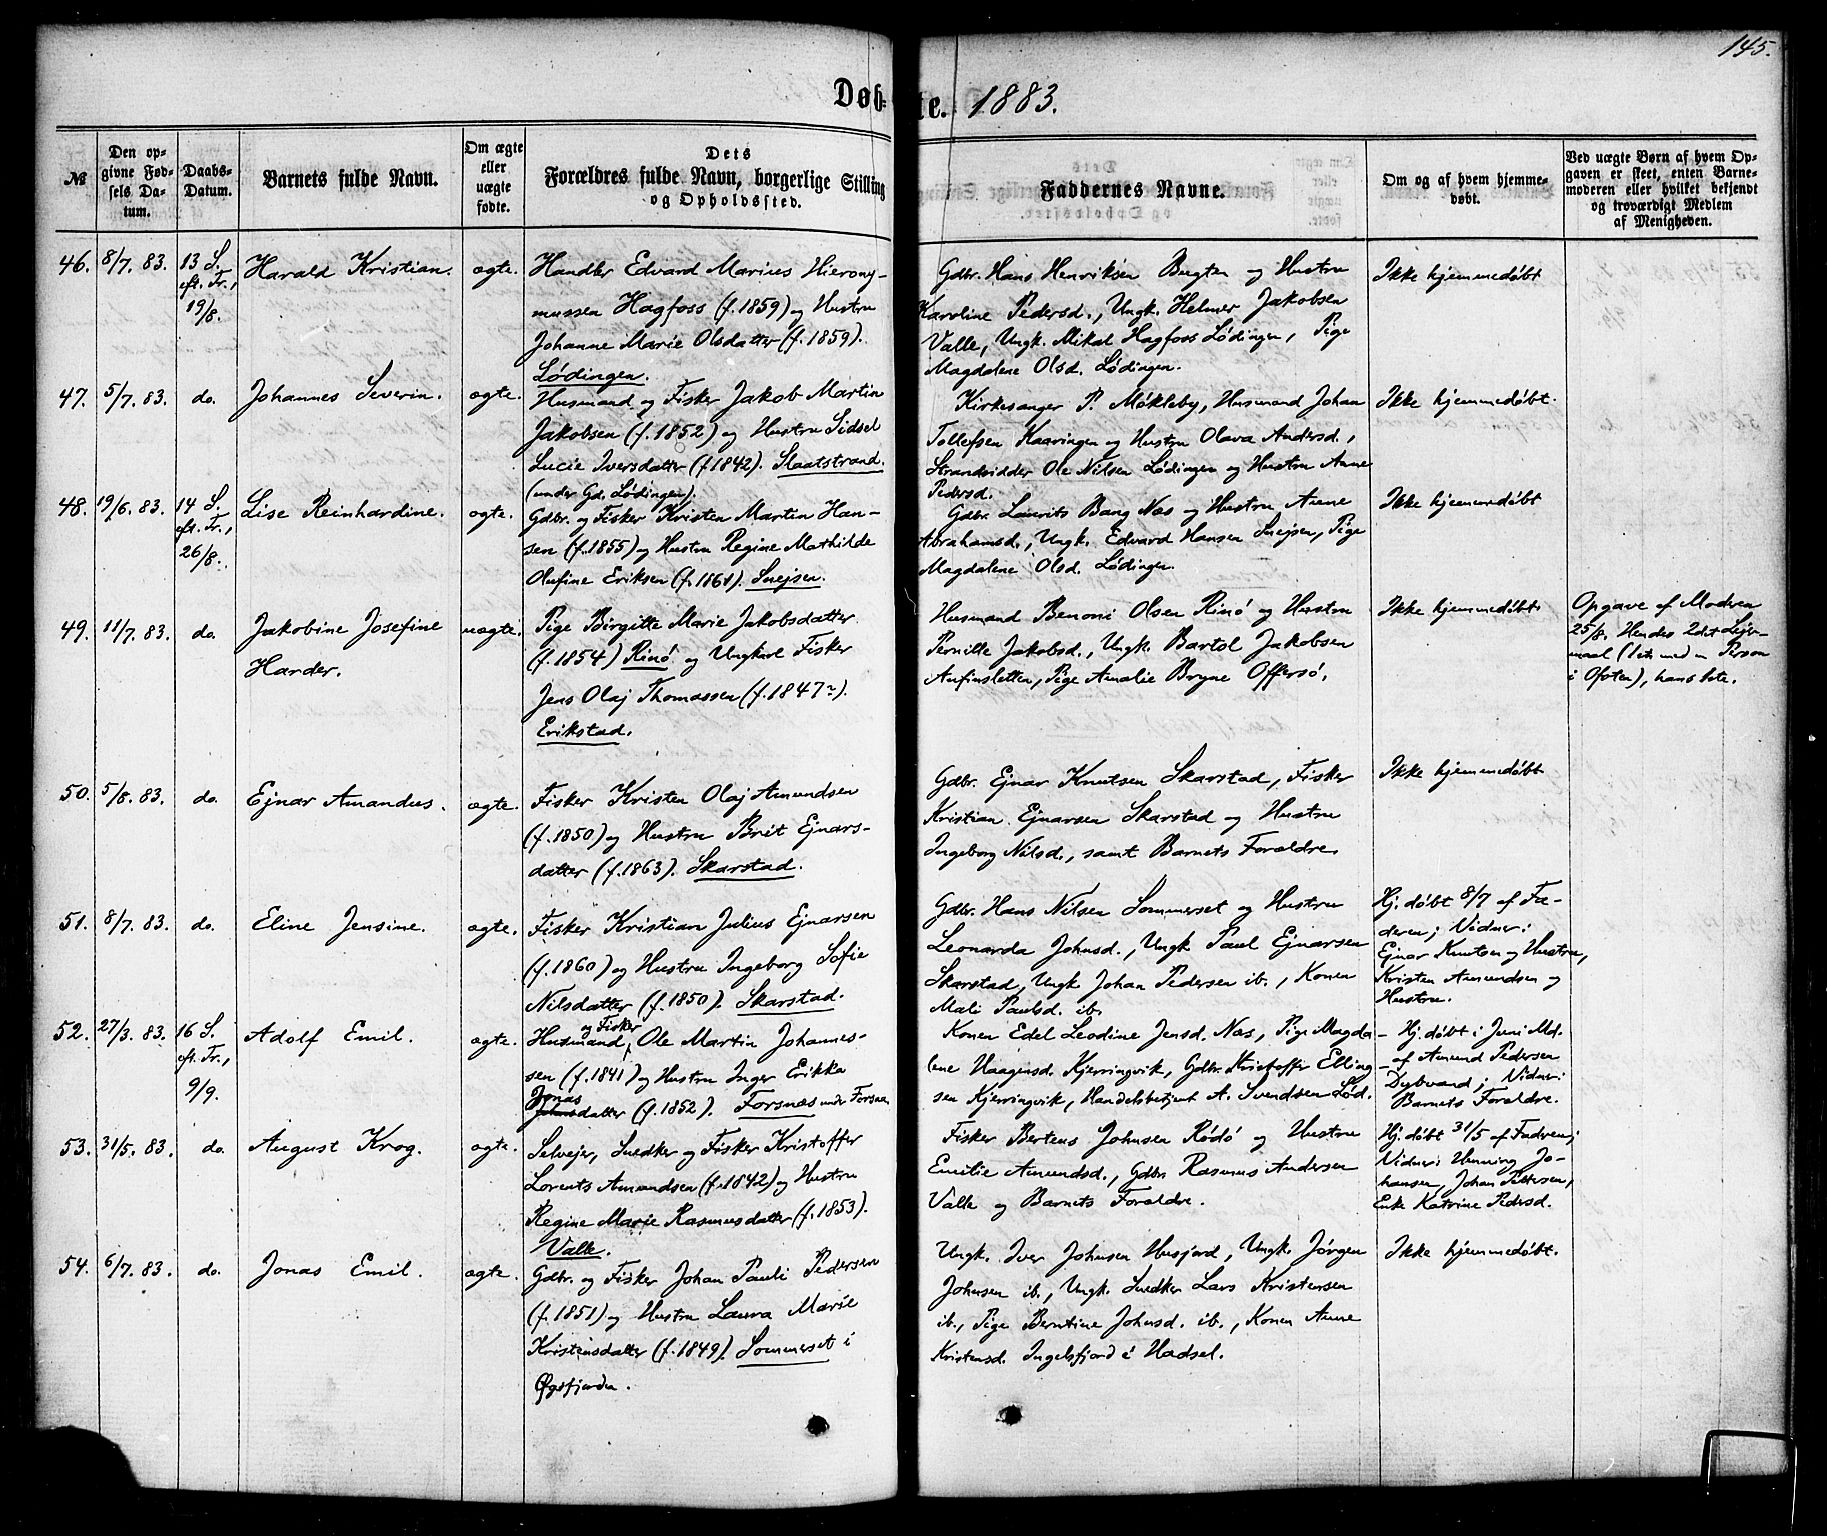 145.
Døb-te. 1883.
№
Den op-
givne Fød-
sels Da-
tum.
Daabs-
Datum.
Barnets fulde Navn.
Om ægte
eller
uægte
fødte.
Dets
Forældres fulde Navn, borgerlige Stilling
og Opholdssted.
Faddernes Navne.
Om og af hvem hjemme-
døbt.
Ved uægte Børn af hvem Op-
gaven er skeet, enten Barne-
moderen eller hvilket bekjendt
og troværdigt Medlem
af Menigheden.
46. 8/7. 83. 13 S.
eft. Tr.,
19/8.
Harald Kristian. ægte.
Handler Edvard Marius Hierony-
mussen Hagfoss (f. 1859) og Hustru
Johanne Marie Olsdatter (f. 1859).
Lødingen.
Gdbr. Hans Henriksen Bugten og Hustru
Karoline Pedersd., Ungk. Helmer Jakobsen
Valle, Ungk. Mikal Hagfoss Lødingen, Pige
Magdalene Olsd. Lødingen.
Ikke hjemmedøbt
47. 5/7. 83. do. Johannes Severin. ægte.
Husmand og Fisker Jakob Martin
Jakobsen (f. 1852) og Hustru Sidsel
Lucie Iversdatter (f. 1842). Slaatstrand.
(under Gd. Lødingen).
Kirkesanger P. Møkleby, Husmand Johan
Tollefsen Kaaringen og Hustru Olava Andersd.,
Strandsidder Ole Nilsen Lødingen og Hustru Anne
Pedersd.
Ikke hjemmedøbt.
48. 19/6. 83. 14 S.
eft. Tr.,
26/8.
Lise Reinhardine. ægte.
Gdbr. og Fisker Kristen Martin Han-
sen (f. 1855) og Hustru Regine Mathilde
Olufine Eriksen (f. 1861). Snejsen.
Gdbr. Laurits Bang Næs og Hustru Anne
Abrahamsd., Ungk. Edvard Hansen Snejsen, Pige
Magdalene Olsd. Lødingen.
Ikke hjemmedøbt
49. 11/7. 83. do. Jakobine Josefine
Harder.
uægte.
Pige Birgitte Marie Jakobsdatter
(f. 1854) Rinø og Ungkarl Fisker
Jens Olaj Thomassen (f. 1847?).
Erikstad.
Husmand Benoni Olsen Rinø og Hustru
Pernille Jakobsd., Ungk. Bartol Jakobsen
Anfinsletten, Pige Amalie Bryne Offersø.
Ikke hjemmedøbt.
Opgave af Modren
25/8. Hendes 2det Lejer-
maal (1ste med en Person
i Ofoten), hans 1ste.
50. 5/8. 83. do. Ejnar Amandus. ægte.
Fisker Kristen Olaj Amundsen
(f. 1850) og Hustru Brit Ejnars-
datter (f. 1863). Skarstad.
Gdbr. Ejnar Knutsen Skarstad, Fisker
Kristian Ejnarsen Skarstad og Hustru
Ingeborg Nilsd., samt Barnets Forældre.
Ikke hjemmedøbt.
51. 8/7. 83. do. Eline Jensine. ægte.
Fisker Kristian Julius Ejnarsen
(f. 1860) og Hustru Ingeborg Sofie
Nilsdatter (f. 1850). Skarstad.
Gdbr. Hans Nilsen Sommerset og Hustru
Leonarda Johnsd., Ungk. Paul Ejnarsen
Skarstad, Ungk. Johan Pedersen ib., Konen
Mali Paulsd. ib.
Hj. døbt 8/7 af Fa-
deren; Vidner:
Ejnar Knutsen og Hustru,
Kristen Amundsen og
Hustru.
52. 27/3. 83. 16 S.
eft. Tr.,
9/9.
Adolf Emil. ægte.
og Fisker
Husmand, Ole Martin Johannes-
sen (f. 1841) og Hustru Inger Erikka
Jonas
datter (f. 1852). Forsnæs under Forsnæs
Konen Edel Leodine Jensd. Næs, Pige Magda-
lene Haagensd. Kjerringvik, Gdbr. Kristoffer Elling-
sen Kjerringvik, Handelsbetjent A. Svendsen Lød.
Hj. døbt i Juni Md.
af Amund Pedersen
Dybvand; Vidner:
Barnets Forældre.
53. 31/5. 83. do. August Krog. ægte.
Selvejer, Snedker og Fisker Kristoffer
Lorents Amundsen (f. 1842) og Hustru
Regine Marie Rasmusdatter (f. 1853).
Valle.
Fisker Bertens Johnsen Rødø og Hustru
Emilie Amundsd., Gdbr. Rasmus Andersen
Valle og Barnets Forældre.
Hj. døbt 31/5 af Fadren;
Vidner: Henning Jo-
hansen, Johan Pettersen,
Enke Katrine Pedersd.
54. 6/7. 83. do. Jonas Emil. ægte.
Gdbr. og Fisker Johan Pauli Pedersen
(f. 1851) og Hustru Laura Marie
Kristensdatter (f. 1849). Sommerset i
Øgsfjorden.
Ungk. Iver Johnsen Husjord, Ungk. Jørgen
Johnsen ib., Ungk. Snedker Lars Kristensen
ib., Pige Berntine Johnsd. ib., Konen Anne
Kristensd. Ingelsfjord i Hadsel.
Ikke hjemmedøbt.